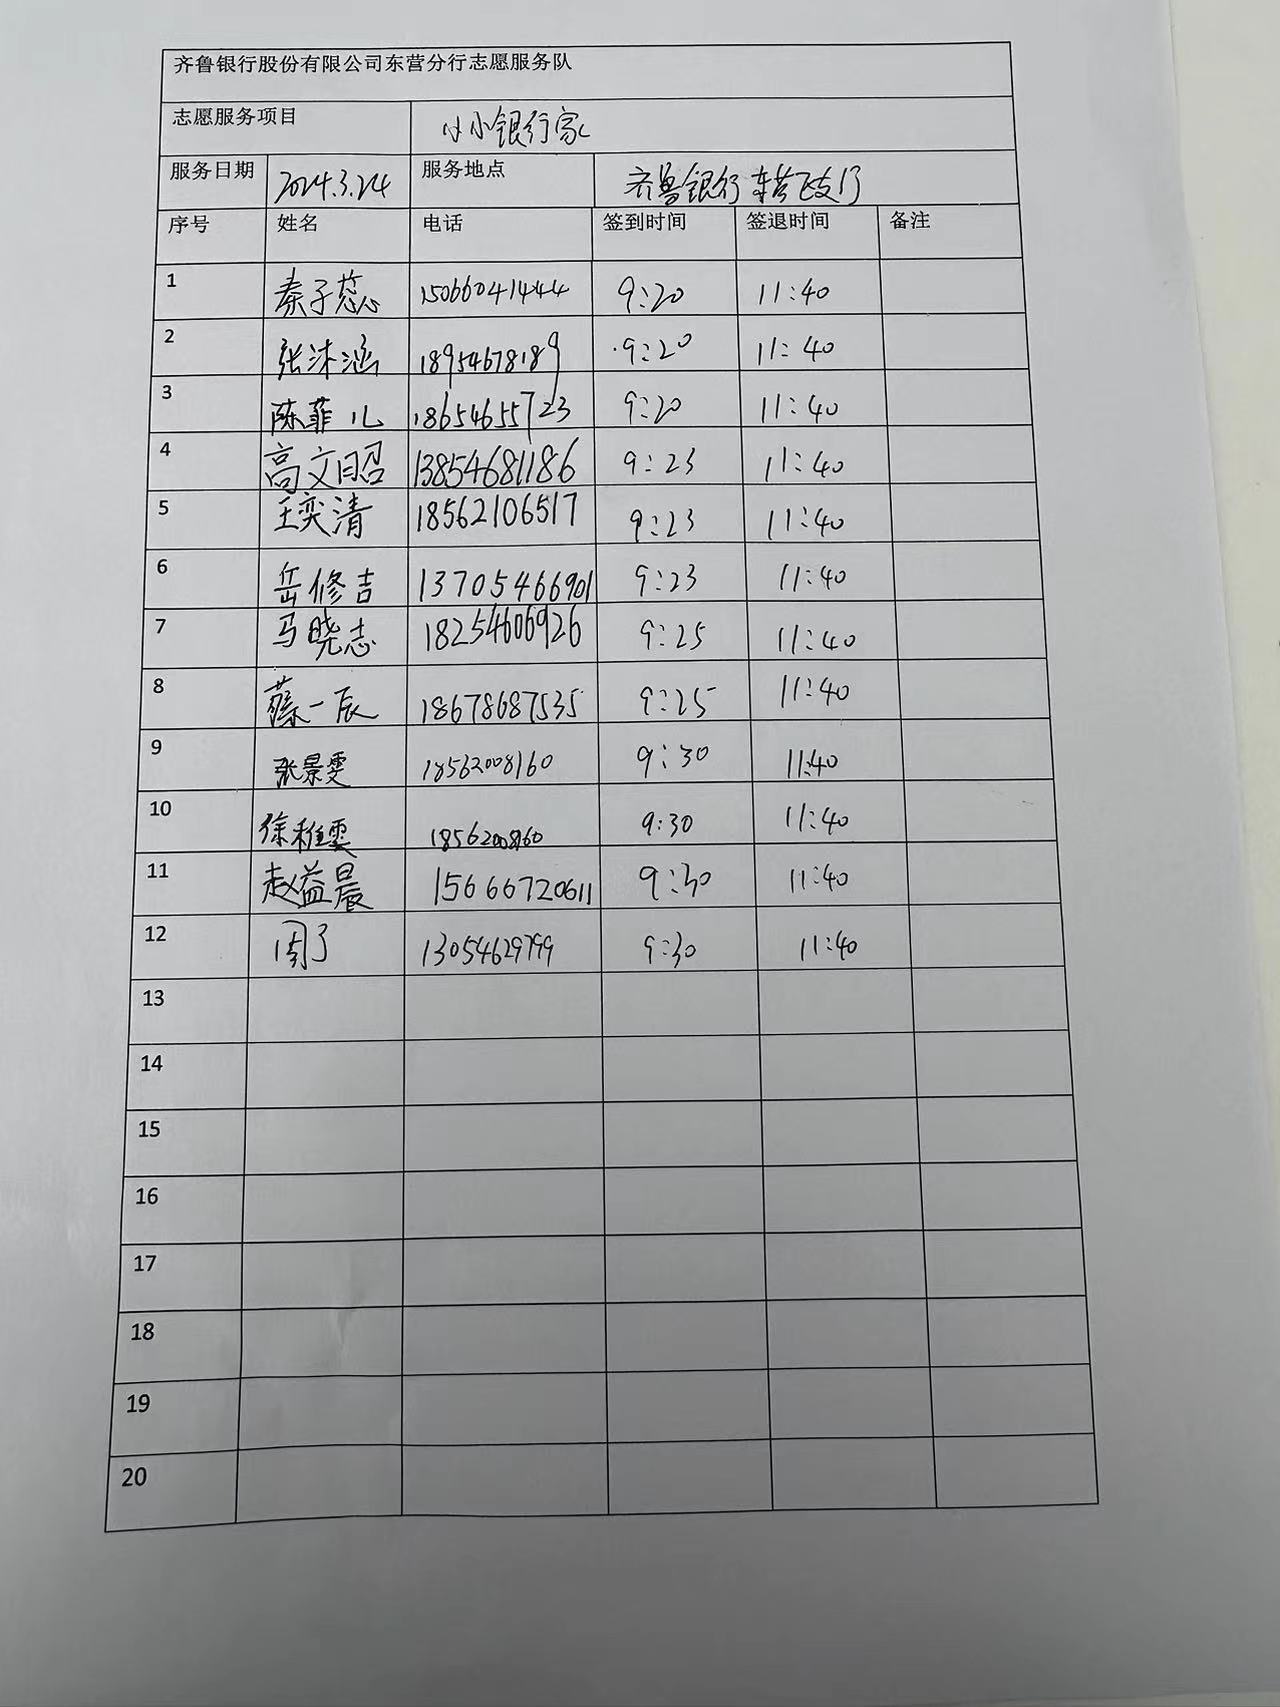 齐鲁银行股份有限公司东营分行志愿服务队
志愿服务项目 小小银行家
服务日期 2024.3.24 服务地点 齐鲁银行东营支行
序号 姓名 电话 签到时间 签退时间 备注
1 秦子蕊 15066041444 9:20 11:40
2 张沐涵 18954678189 9:20 11:40
3 陈菲儿 18654655723 9:20 11:40
4 高文昭 13854681186 9:23 11:40
5 王奕清 18562106517 9:23 11:40
6 岳修吉 13705466901 9:23 11:40
7 马晓志 18254606926 9:25 11:40
8 一辰 18678687535 9:25 11:40
9 张景雯 18562008160 9:30 11:40
10 徐稚雯 18562008160 9:30 11:40
11 赵益晨 15666720611 9:30 11:40
12 周了 13054629799 9:30 11:40
13
14
15
16
17
18
19
20